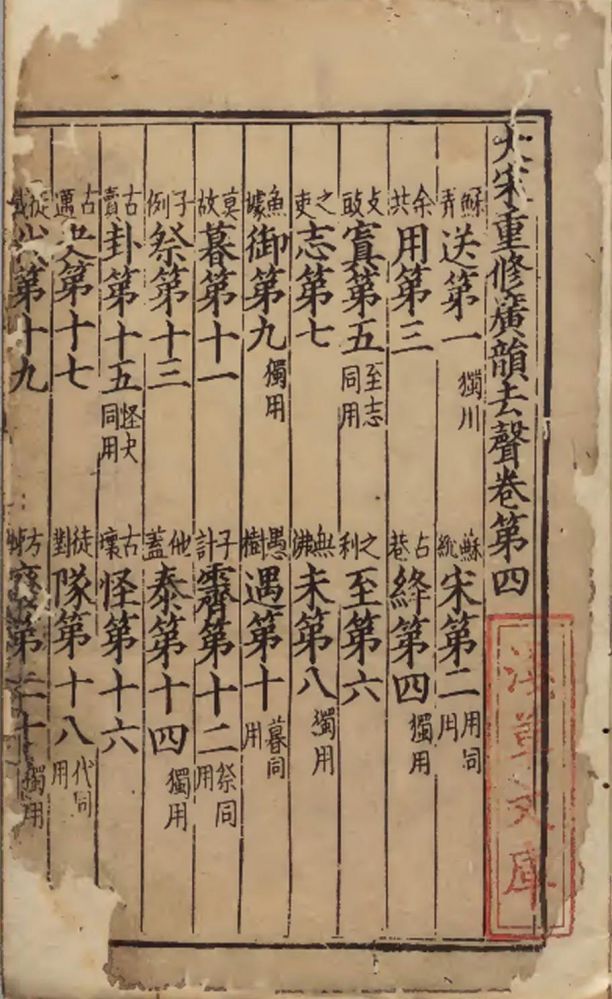 大宋重修廣韻去聲卷第四
蘇弄送第一獨用 蘇統宋第二用同用
余共用第三 古巷絳第四獨用
支豉寘第五至志同用 之利至第六
之吏志第七 無沸未第八獨用
魚據御第九獨用 愚樹遇第十暮同用
莫故暮第十一 子計霽第十二祭同用
子例祭第十三 他蓋泰第十四獨用
古賣卦第十五怪夬同用 古壞怪第十六
古邁夬第十七 徒對隊第十八代同用
徒第十九 方第二十獨用
文庫